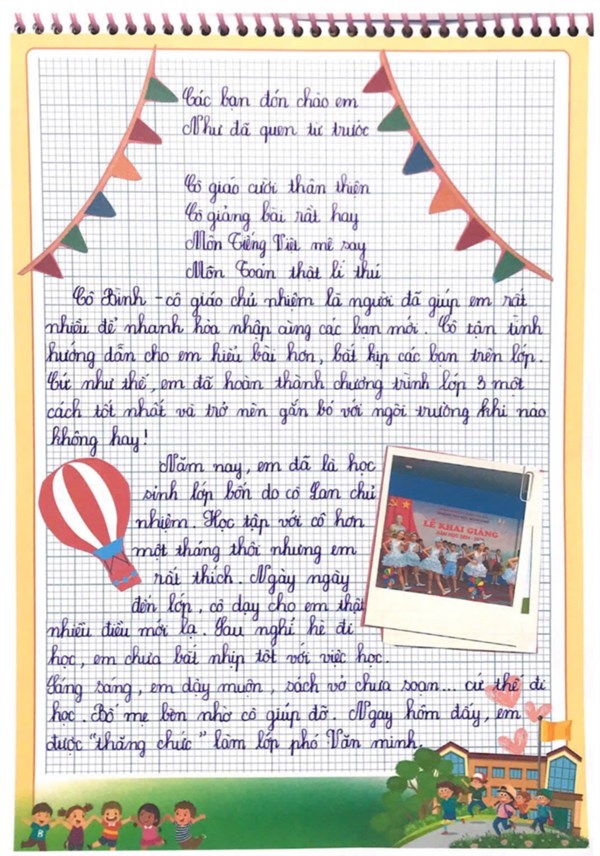 Các bạn đón chào em
Như đã quen từ trước
Cô giáo cười thân thiện
Cô giảng bài rất hay
Môn Tiếng Việt mê say
Môn Toán thật lí thú
Cô Bình - cô giáo chủ nhiệm là người đã giúp em rất
nhiều để nhanh hòa nhập cùng các bạn mới. Cô tận tình
hướng dẫn cho em hiểu bài hơn, bắt kịp các bạn trên lớp.
Cứ như thế, em đã hoàn thành chương trình lớp 3 một
cách tốt nhất và trở nên gắn bó với ngôi trường khi nào
không hay!
Năm nay, em đã là học
sinh lớp bốn do cô Lan chủ
nhiệm. Học tập với cô hơn
một tháng thôi nhưng em
rất thích. Ngày ngày
đến lớp, cô dạy cho em thật
nhiều điều mới lạ. Sau nghỉ hè đi
học, em chưa bắt nhịp tốt với việc học.
Sáng sáng, em dậy muộn, sách vở chưa soạn... cứ thế đi
học. Bố mẹ bèn nhờ cô giúp đỡ. Ngay hôm đấy, em
được "thăng chức" làm lớp phó Văn minh.
LỄ KHAI GIẢNG